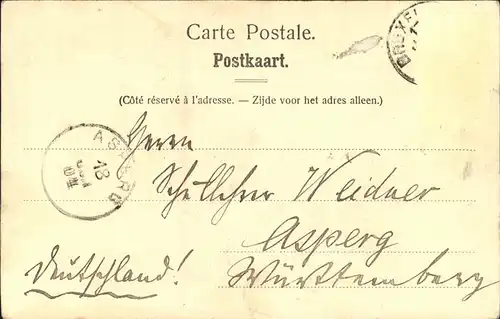 Carte Postale.
Postkaart.
(Côté réservé à l'adresse. — Zijde voor het adres alleen.)
BRUXEL
ASPERG
18
Herrn
Schullehrer Weidner
Asperg
Deutschland!
Württemberg